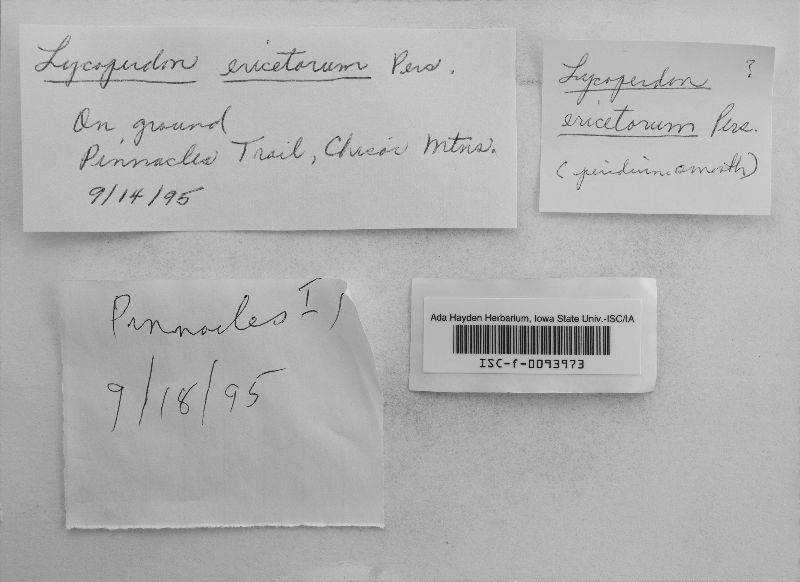 Lycoperdon ericetorum Pers.
On ground
Pinnacles Trail, Chisos Mtns.
9/14/95
Lycoperdon ?
ericetorum Pers.
(peridium smooth)
Pinnacles I
9/18/95
Ada Hayden Herbarium, Iowa State Univ.-ISC/IA
ISC-f-0093973